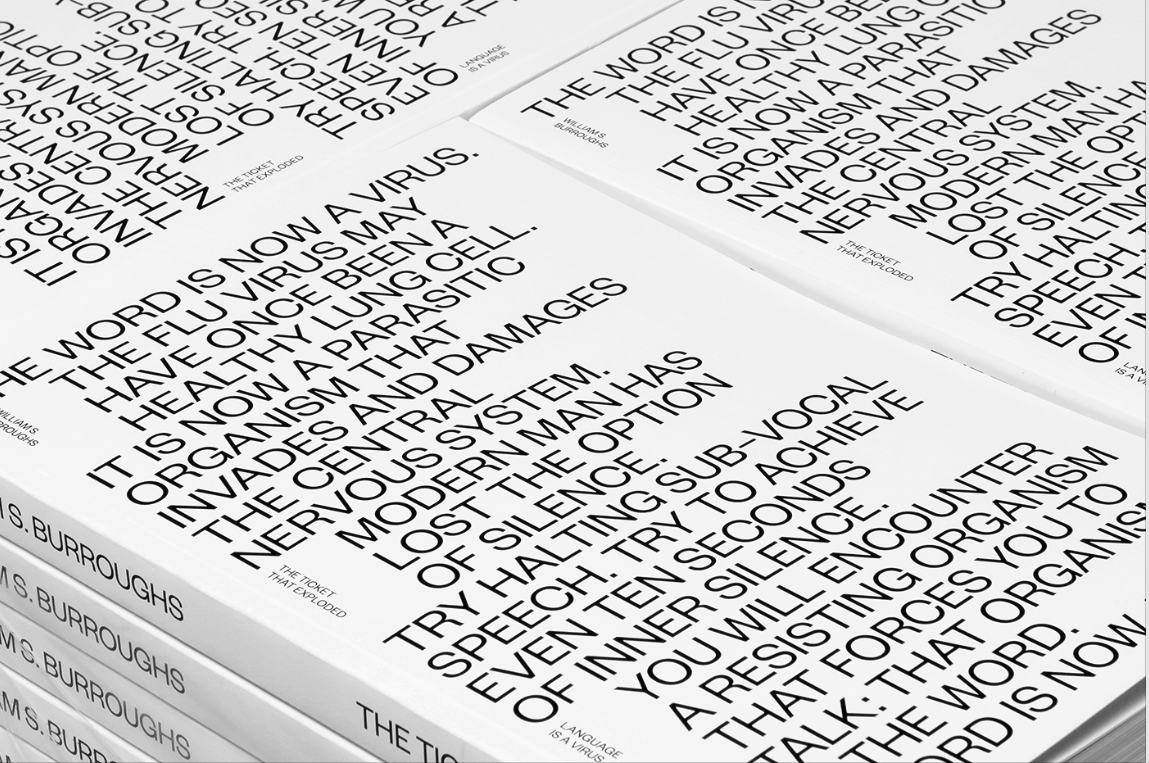 IT IS
ORGAN
INVADES A
THE CENTR
NERVOUS SYS
MODERN MAN
LOST THE OPTIO
OF SILENCE.
TRY HALTING SUB-
SPEECH. TRY TO
EVEN TEN SE
OF INNER
THE TICKET
THAT EXPLODED
LANGUAGE
IS A VIRUS
THE WORD IS
THE FLU VIRUS
HAVE ONCE BEE
HEALTHY LUNG C
IT IS NOW A PARASITIC
ORGANISM THAT
INVADES AND DAMAGES
THE CENTRAL
NERVOUS SYSTEM.
MODERN MAN HA
LOST THE OPTI
OF SILENCE
TRY HALTING
SPEECH. T
EVEN T
OF IN
WILLIAM S.
BURROUGHS
THE TICKET
THAT EXPLODED
LAN
IS A V
HE WORD IS NOW A VIRUS.
THE FLU VIRUS MAY
HAVE ONCE BEEN A
HEALTHY LUNG CELL.
IT IS NOW A PARASITIC
ORGANISM THAT
INVADES AND DAMAGES
THE CENTRAL
NERVOUS SYSTEM.
MODERN MAN HAS
LOST THE OPTION
OF SILENCE.
TRY HALTING SUB-VOCAL
SPEECH. TRY TO ACHIEVE
EVEN TEN SECONDS
OF INNER SILENCE.
YOU WILL ENCOUNTER
A RESISTING ORGANISM
THAT FORCES YOU TO
TALK: THAT ORGANISM
THE WORD.
ORD IS NOW
WILLIAM S.
BURROUGHS
THE TICKET
THAT EXPLODED
LANGUAGE
IS A VIRUS
M S. BURROUGHS
THE TIC
M S. BURROUGHS
AM S. BURROUGHS
AM S. BURRO